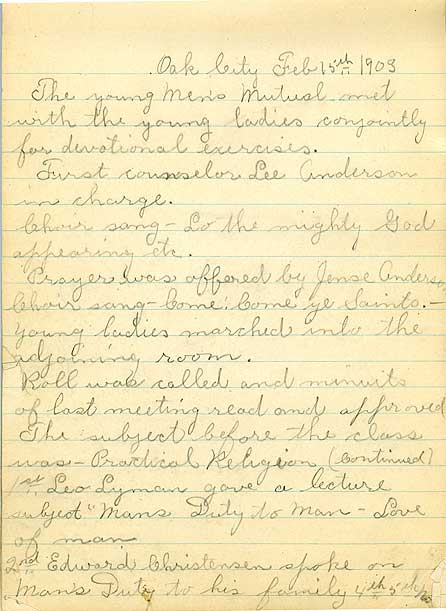 Oak City Feb 15th 1903
The young Men's Mutual met
with the young ladies conjointly
for devotional exercises.
First counselor Lee Anderson
in charge.
Choir sang - Lo the mighty God
appearing etc.
Prayer was offered by Jense Anderso
Choir sang - Come, Come ye Saints. -
Young ladies marched into the
adjoining room.
Roll was called and minuits
of last meeting read and approved
The subject before the class
was - Practical Religion (Continued)
1st Leo Lyman gave a lecture
subject "Mans Duty to Man - Love
of man
2nd Edward Christensen spoke on
Man's Duty to his family 4th 5th